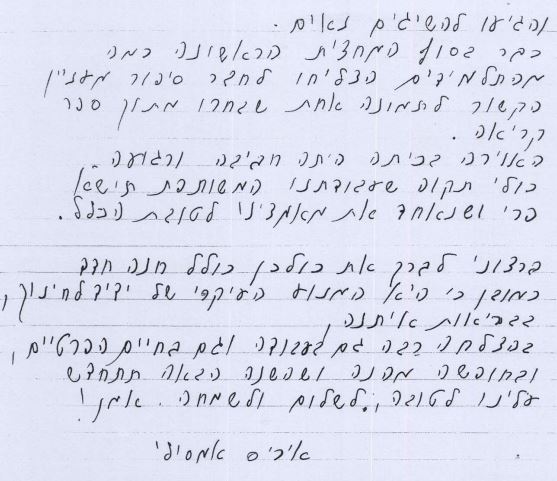 והגיעו להשיגים נאים.
כבר בסוף המחצית הראשונה כמה
מהתלמידים הצליחו לחבר סיפור מעניין
הקשור לתמונה אחת שבחרו מתוך ספר
קריאה.
האוירה בכיתה היתה חביבה ורגועה.
כולי תקוה שעבודתנו המשותפת תישא
פרי ושנאחד את מאמצינו לטובת הכלל.
ברצוני לברך את כולכן כולל חנה
כמובן כי היא המנוע העיקרי של ידיד לחינוך,
בבריאות איתנה,
בהצלחה רבה גם בעבודה וגם בחיים הפרטיים,
ובחופשה מהנה ושהשנה הבאה תתחדש
עלינו לטובה, לשלום ולשמחה. אמן!
איריס